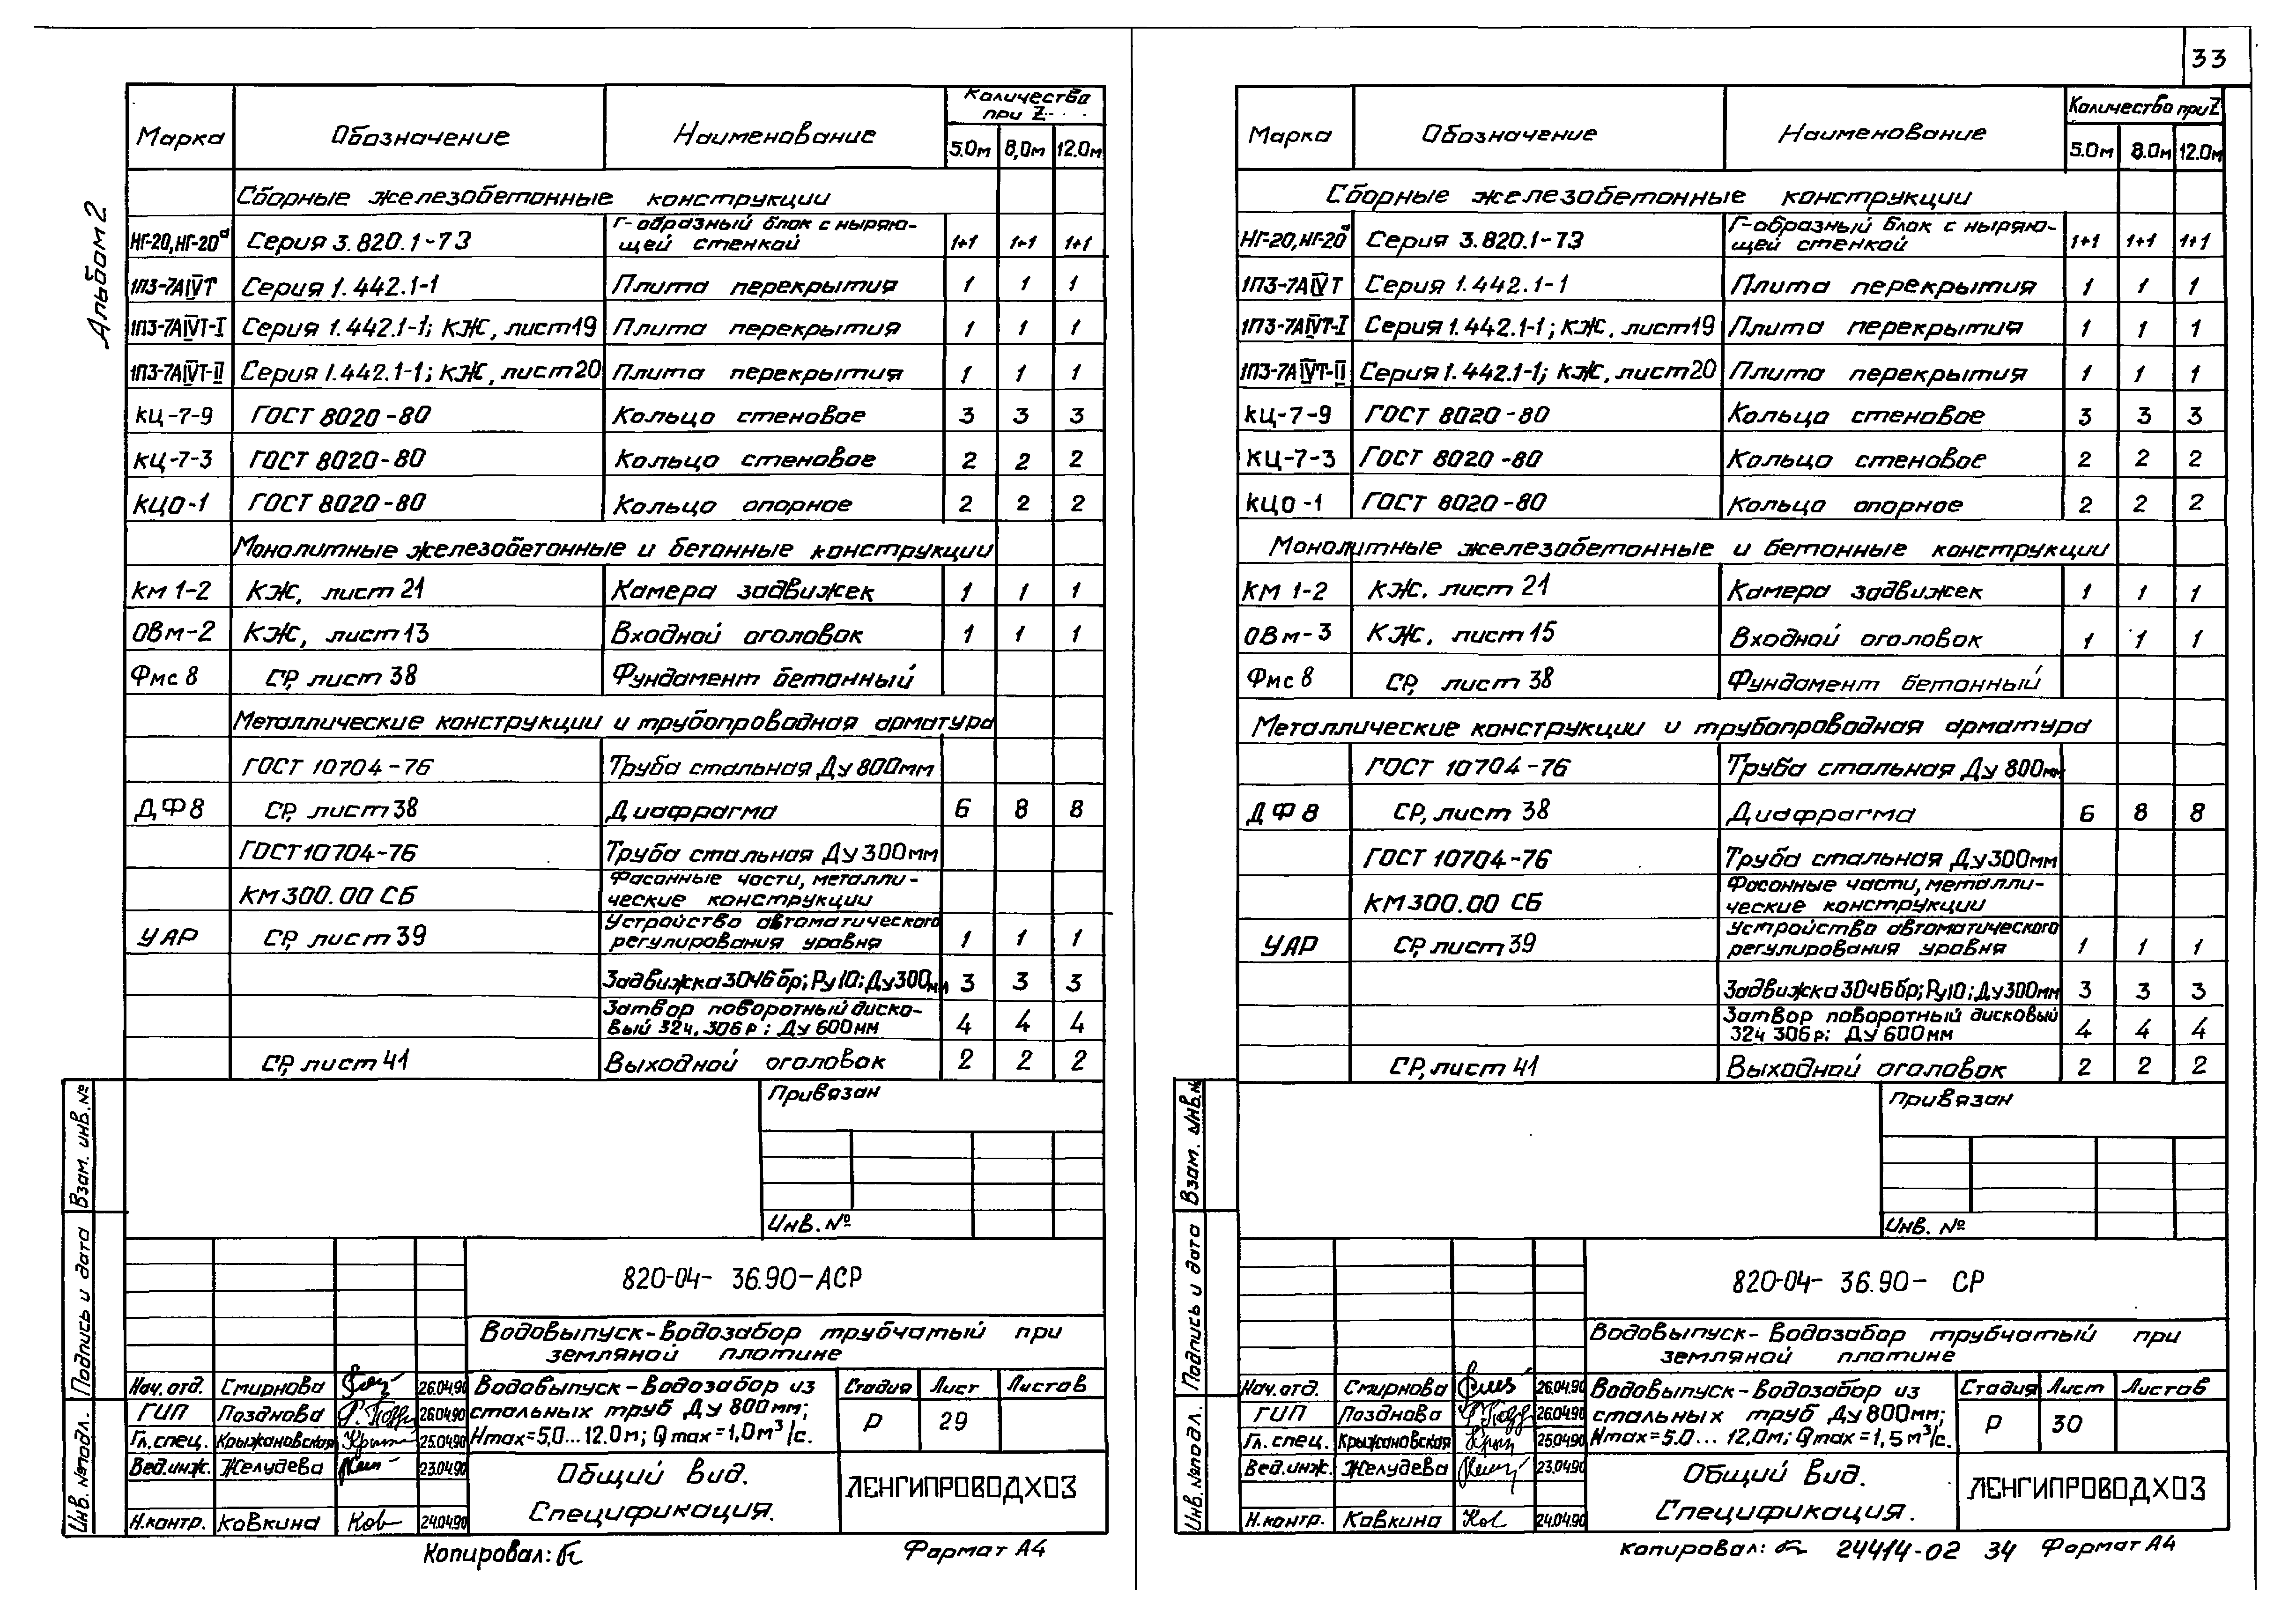 33
Альбом 2
Марка Обозначение Наименование Количества при Z
5.0м 8,0м 12.0м
Сборные железобетонные конструкции
НГ-20, НГ-20а Серия 3.820.1-73 Г-образный блок с ныряю-
щей стенкой 1+1 1+1 1+1
1П3-7АIVТ Серия 1.442.1-1 Плита перекрытия 1 1 1
1П3-7АIVТ-I Серия 1.442.1-1; КЖ, лист 19 Плита перекрытия 1 1 1
1П3-7АIVТ-II Серия 1.442.1-1; КЖ, лист 20 Плита перекрытия 1 1 1
КЦ-7-9 ГОСТ 8020-80 Кольцо стеновое 3 3 3
КЦ-7-3 ГОСТ 8020-80 Кольцо стеновое 2 2 2
КЦО-1 ГОСТ 8020-80 Кольцо опорное 2 2 2
Монолитные железобетонные и бетонные конструкции
Км 1-2 КЖ, лист 21 Камера задвижек 1 1 1
ОВм-2 КЖ, лист 13 Входной оголовок 1 1 1
Фмс 8 СР, лист 38 Фундамент бетонный
Металлические конструкции и трубопроводная арматура
ГОСТ 10704-76 Труба стальная Ду 800мм
ДФ8 СР, лист 38 Диафрагма 6 8 8
ГОСТ 10704-76 Труба стальная Ду 300мм
КМ300.00 СБ Фасонные части, металли-
ческие конструкции
УАР СР, лист 39 Устройство автоматического
регулирования уровня 1 1 1
Задвижка 30ч6бр; Ру10; Ду300мм 3 3 3
Затвор поворотный диско-
вый 32ч.306р; Ду 600мм 4 4 4
СР, лист 41 Выходной оголовок 2 2 2
Привязан
Инв. №
Взам. инв. №
Подпись и дата
Инв. № подл.
820-04- 36.90-АСР
Водовыпуск-водозабор трубчатый при
земляной плотине
Нач. отд. Смирнова 26.04.90
ГИП Позднова 26.04.90
Гл. спец. Крыжановская 25.04.90
Вед. инж. Желудева 23.04.90
Н.контр. Ковкина 24.04.90
Водовыпуск-водозабор из
стальных труб Ду 800мм;
Hmax=5,0...12.0м; Qmax=1,0м³/с.
Стадия Лист Листов
Р 29
Общий вид.
Спецификация.
ЛЕНГИПРОВОДХОЗ
Копировал: Формат А4
Марка Обозначение Наименование Количество при Z
5.0м 8.0м 12.0м
Сборные железобетонные конструкции
НГ-20, НГ-20а Серия 3.820.1-73 Г-образный блок с ныряю-
щей стенкой 1+1 1+1 1+1
1П3-7АIVТ Серия 1.442.1-1 Плита перекрытия 1 1 1
1П3-7АIVТ-I Серия 1.442.1-1; КЖ, лист 19 Плита перекрытия 1 1 1
1П3-7АIVТ-II Серия 1.442.1-1; КЖ, лист 20 Плита перекрытия 1 1 1
КЦ-7-9 ГОСТ 8020-80 Кольцо стеновое 3 3 3
КЦ-7-3 ГОСТ 8020-80 Кольцо стеновое 2 2 2
КЦО-1 ГОСТ 8020-80 Кольцо опорное 2 2 2
Монолитные железобетонные и бетонные конструкции
КМ 1-2 КЖ. лист 21 Камера задвижек 1 1 1
ОВм-3 КЖ. лист 15 Входной оголовок 1 1 1
Фмс 8 СР, лист 38 Фундамент бетонный
Металлические конструкции и трубопроводная арматура
ГОСТ 10704-76 Труба стальная Ду 800мм
ДФ8 СР, лист 38 Диафрагма 6 8 8
ГОСТ 10704-76 Труба стальная Ду300мм
КМ300.00 СБ Фасонные части, металли-
ческие конструкции
УАР СР, лист 39 Устройство автоматического
регулирования уровня 1 1 1
Задвижка 30ч6бр; Ру10; Ду300мм 3 3 3
Затвор поворотный дисковый
32ч 306р; Ду 600мм 4 4 4
СР, лист 41 Выходной оголовок 2 2 2
Привязан
Инв. №
Взам. инв. №
Подпись и дата
Инв. № подл.
820-04- 36.90- СР
Водовыпуск-водозабор трубчатый при
земляной плотине
Нач. отд. Смирнова 26.04.90
ГИП Позднова 26.04.90
Гл. спец. Крыжановская 25.04.90
Вед. инж. Желудева 23.04.90
Н.контр. Ковкина 24.04.90
Водовыпуск-водозабор из
стальных труб Ду 800мм;
Hmax=5.0... 12,0м; Qmax=1,5м³/с.
Стадия Лист Листов
Р 30
Общий вид.
Спецификация.
ЛЕНГИПРОВОДХОЗ
Копировал: 24414-02 34 Формат А4